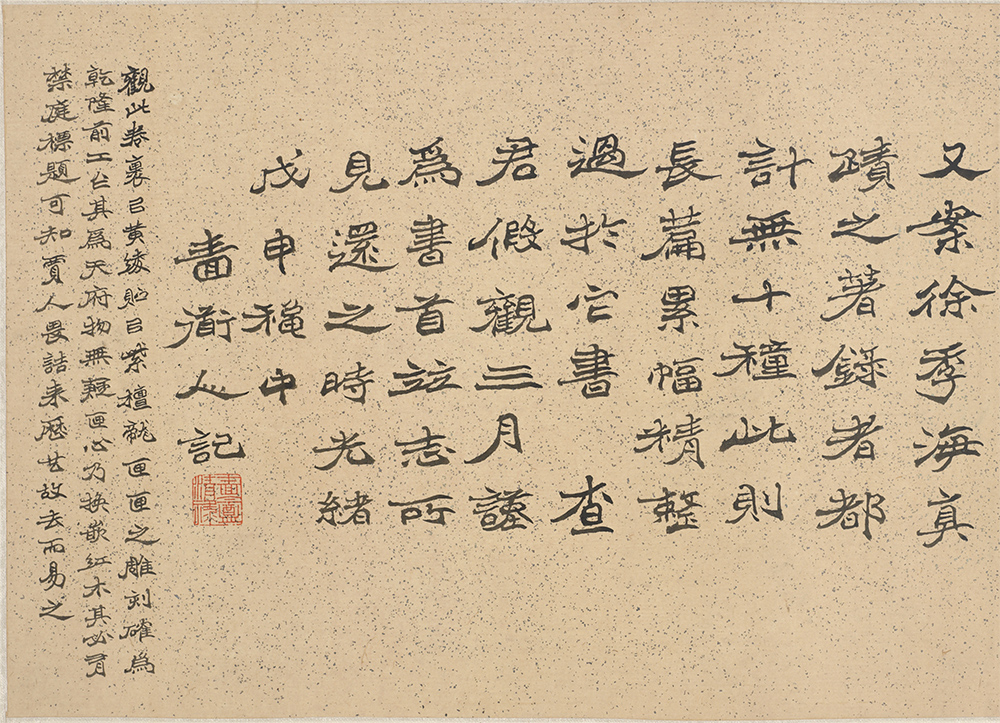 又案徐季海真
蹟之著錄者都
計無十種此則
長篇累幅精整
過於它書 查
君假觀三月謹
為書首竝志所
見還之時光緒
戊申穐中
畫衜人記
觀此卷裏㠯黃綾貯㠯紫檀㼌匣匣之雕刻確為
乾隆前工亡其為天府物無疑匣心乃換嵌紅木其必有
禁庭標題可知賈人畏詰來歷故去而易之